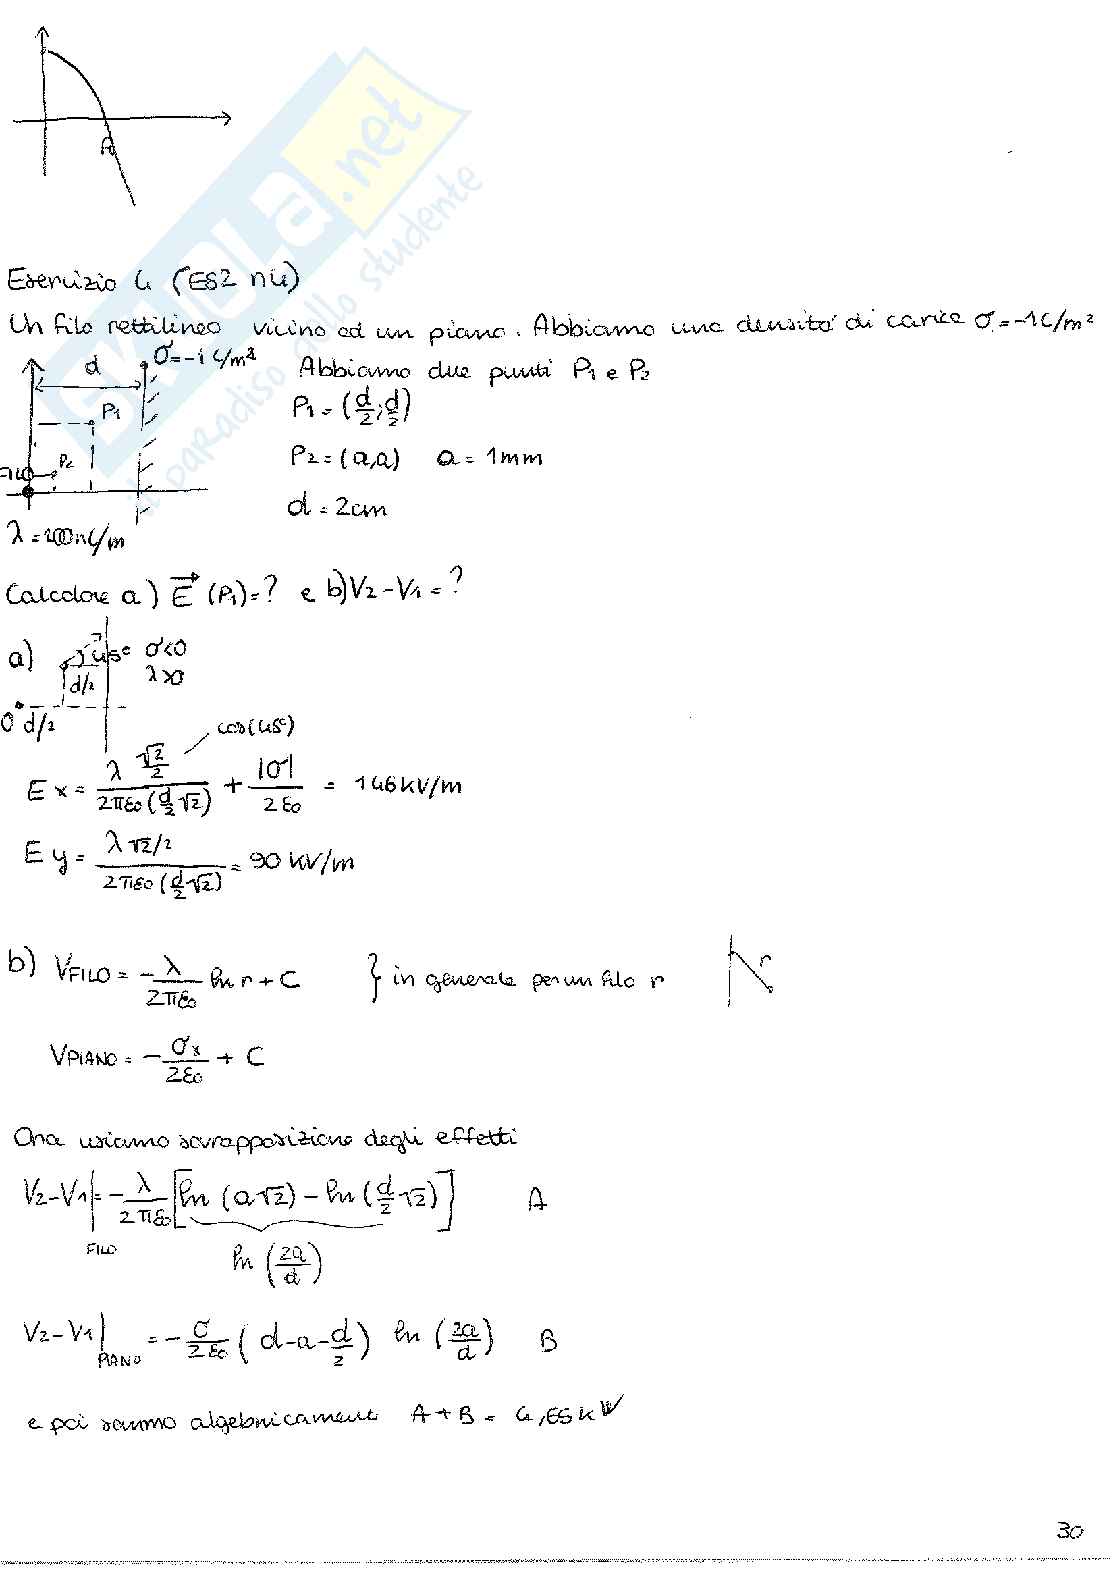 A
SKUOLA.net
il paradiso dello studente
Esercizio 4 (ES2 n4)
Un filo rettilineo vicino ad un piano. Abbiamo una densità di carica σ=-1C/m²
d σ=-1 C/m² Abbiamo due punti P1 e P2
P1 P1=(d/2;d/2)
P2 P2=(a,a) a=1mm
FILO
d=2cm
λ=100nC/m
Calcolare a) E⃗(P1)=? e b)V2-V1=?
a) 45° σ<0
d/2 λ>0
0 d/2
cos(45°)
Ex= λ √2/2 / 2πε0(d/2 √2) + |σ| / 2ε0 = 146kV/m
Ey= λ√2/2 / 2πε0(d/2 √2) = 90 kV/m
b) VFILO= -λ/2πε0 ln r + C } in generale per un filo r r
VPIANO= -σx/2ε0 + C
Ora usiamo sovrapposizione degli effetti
V2-V1|FILO = -λ/2πε0 [ln (a√2) - ln (d/2 √2)] A
ln (2a/d)
V2-V1|PIANO = -σ/2ε0 (d-a-d/2) ln (2a/d) B
e poi sommo algebricamente A+B= 4,65kV
30